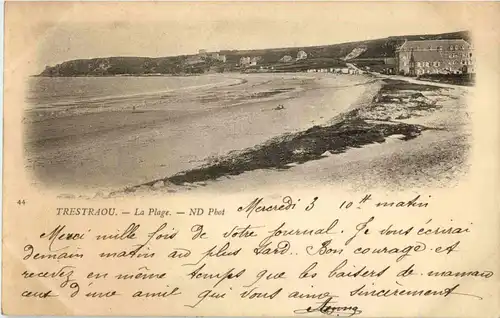 44
TRESTRAOU. — La Plage. — ND Phot
Mercredi 3 10h matin
Merci mille fois de votre journal. Je vous écrirai
demain matin au plus tard. Bon courage et
recevez en même temps que les baisers de maman
ceux d'une amie qui vous aime sincèrement